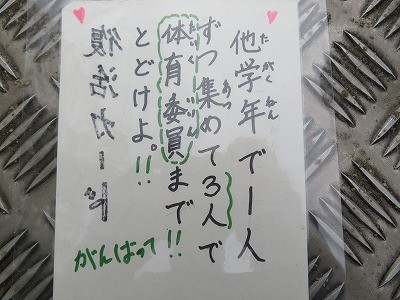 たがくねん
他学年で1人
あつ
ずつ集めて3人で
たいいくいいん
体育委員まで!!
とどけよ。!!
復活カード
がんばって